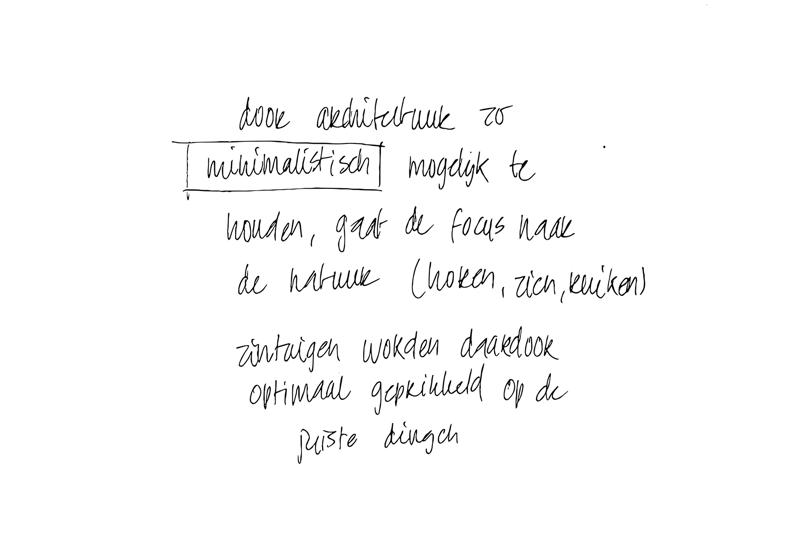 door architectuur zo
minimalistisch mogelijk te
houden, gaat de focus naar
de natuur (horen, zien, ruiken)
zintuigen worden daardoor
optimaal geprikkeld op de
juiste dingen